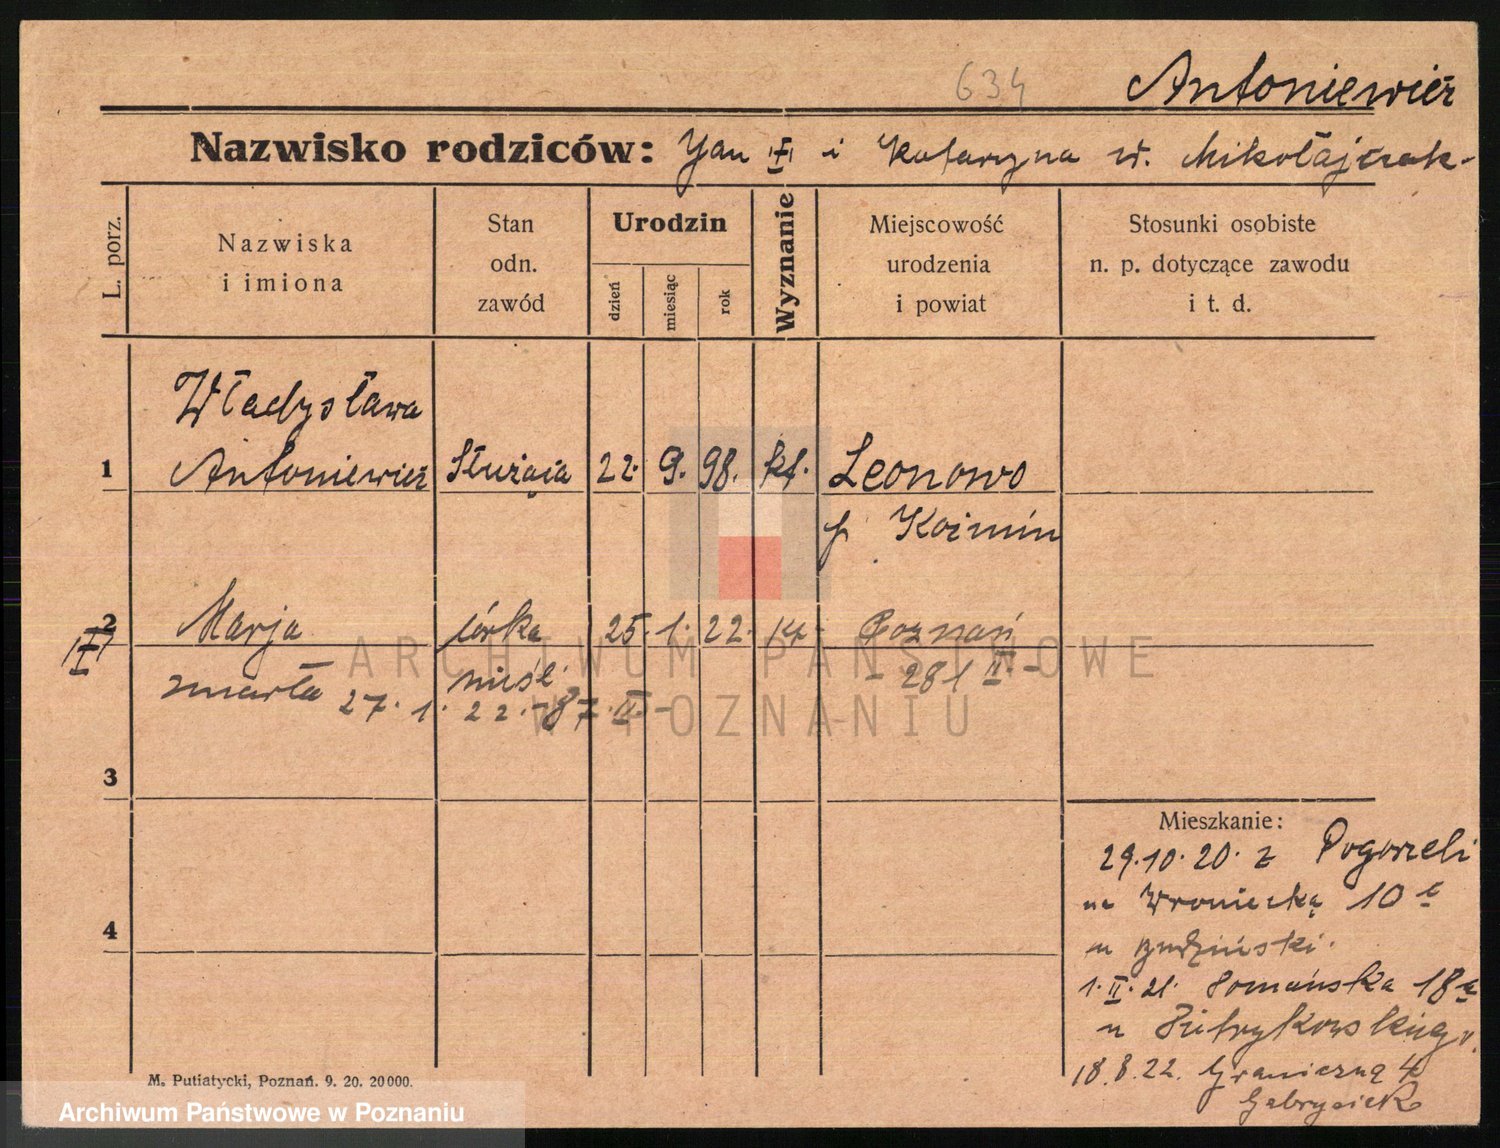 634 Antoniewicz
Nazwisko rodziców: Jan i Katarzyna u. Mikołajczak-
L. porz.
Nazwiska
i imiona
Stan
odn.
zawód
Urodzin
dzień
miesiąc
rok
Wyznanie
Miejscowość
urodzenia
i powiat
Stosunki osobiste
n. p. dotyczące zawodu
i t. d.
Władysława
1 Antoniewicz Służąca 22. 9. 98. kt. Leonowo
p Kozmin
2 Marja córka 25. 1. 22. kt. Poznań
zmarła nieśl. 281 II. -
27. 1. 22. - 87. II. -
3
4
Mieszkanie:
29.10.20. z Pogorzeli
na Wroniecką 10
u Budziński.
1. II. 21. 18a
u
18.8.22. Graniczną 4
Gabrysiak
M. Putiatycki, Poznań. 9. 20. 20000.
ARCHIWUM PAŃSTWOWE
W POZNANIU
Archiwum Państwowe w Poznaniu